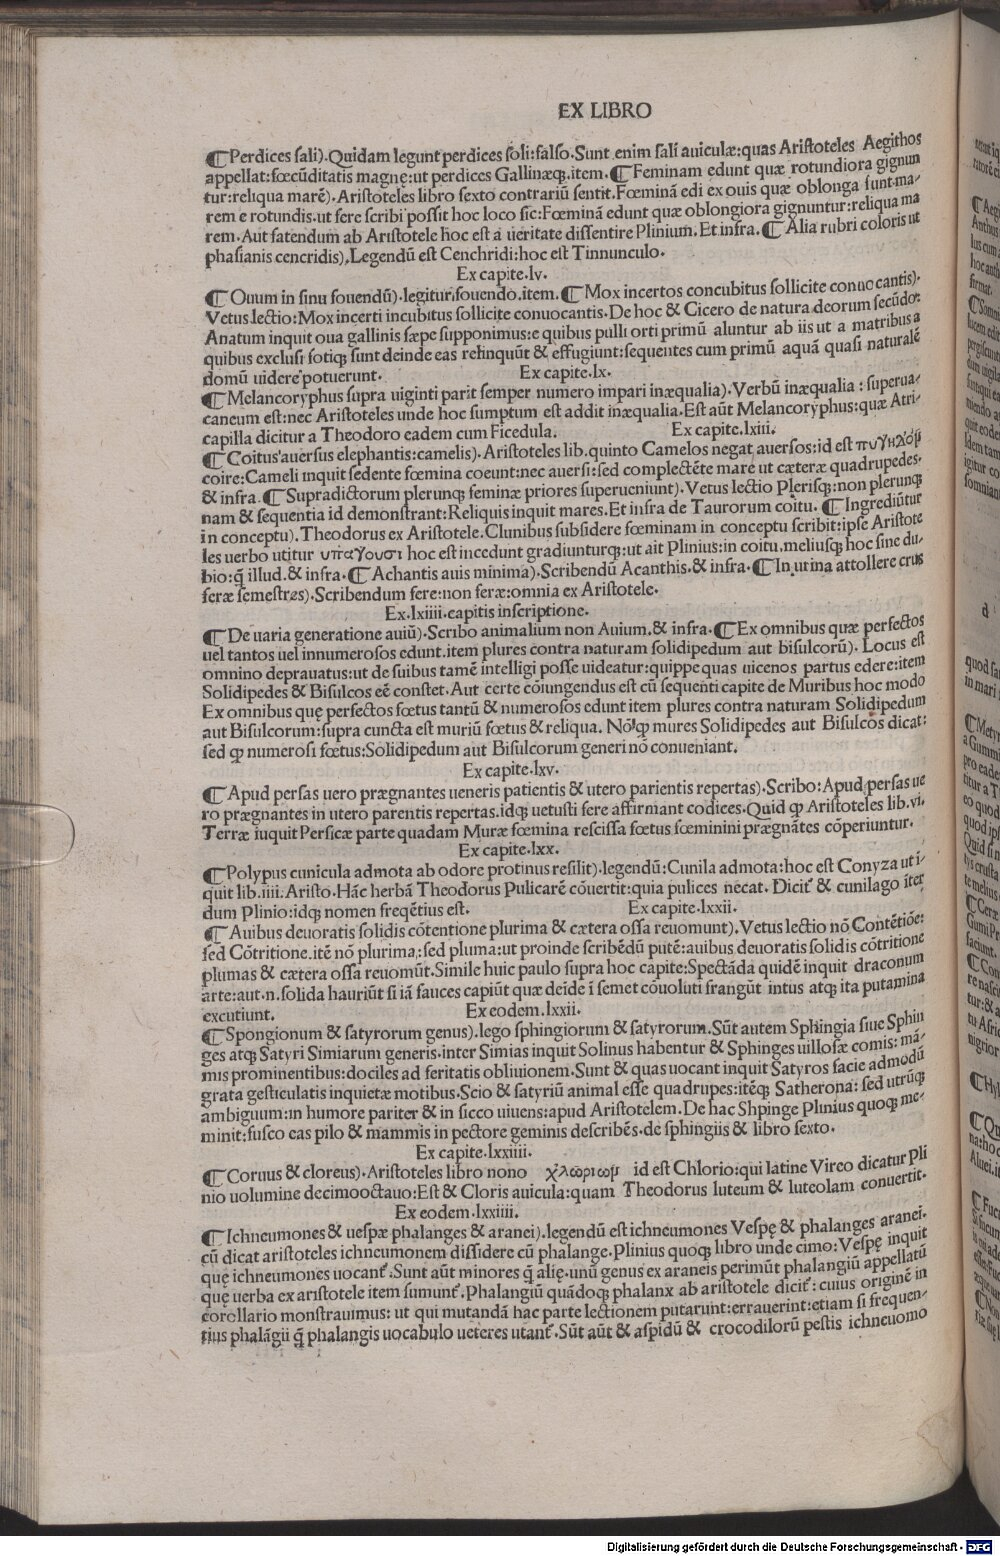 EX LIBRO
¶Perdices sali).Quidam legunt perdices soli:falso.Sunt enim sali auiculæ:quas Aristoteles Aegithos
appellat:fœcūditatis magnę:ut perdices Gallinæq;.item.¶Feminam edunt quæ rotundiora gignun
tur:reliqua marē).Aristoteles libro sexto contrariū sentit.Fœminā edi ex ouis quæ oblonga sunt.ma-
rem e rotundis.ut fere scribi possit hoc loco sic:Fœminā edunt quæ oblongiora gignuntur:reliqua ma
rem.Aut fatendum ab Aristotele hoc est a ueritate dissentire Plinium.Et infra.¶Alia rubri coloris ut
phasianis cencridis).Legendū est Cenchridi:hoc est Tinnunculo.
Ex capite.lv.
¶Ouum in sinu fouendū).legitur,fouendo.item.¶Mox incertos concubitus sollicite conuocantis).
Vetus lectio:Mox incerti incubitus sollicite conuocantis.De hoc & Cicero de natura deorum secūdo:
Anatum inquit oua gallinis sæpe supponimus:e quibus pulli orti primū aluntur ab iis ut a matribus a
quibus exclusi fotiq; sunt deinde eas relinquūt & effugiunt:sequentes cum primū aquā quasi naturalē
domū uidere potuerunt. Ex capite.lx.
¶Melancoryphus supra uiginti parit semper numero impari inæqualia).Verbū inæqualia : superua-
caneum est:nec Aristoteles unde hoc sumptum est addit inæqualia.Est aūt Melancoryphus:quæ Atri-
capilla dicitur a Theodoro eadem cum Ficedula. Ex capite.lxiii.
¶Coitus auersus elephantis:camelis).Aristoteles lib.quinto Camelos negat auersos:id est πυγηδὸμ
coire:Cameli inquit sedente fœmina coeunt:nec auersi:sed complectēte mare ut cæteræ quadrupedes.
& infra.¶Supradictorum plerunq; feminæ priores superueniunt).Vetus lectio Plerisq;:non plerunq;
nam & sequentia id demonstrant:Reliquis inquit mares.Et infra de Taurorum coitu.¶Ingrediūtur
in conceptu).Theodorus ex Aristotele.Clunibus subsidere fœminam in conceptu scribit:ipse Aristote
les uerbo utitur υπαγουσι hoc est incedunt gradiunturq;:ut ait Plinius:in coitu.meliusq; hoc sine du-
bio:q̄ illud.& infra.¶Achantis auis minima).Scribendū Acanthis.& infra.¶In utina attollere crus
feræ semestres).Scribendum fere:non feræ:omnia ex Aristotele.
Ex.lxiiii.capitis inscriptione.
¶De uaria generatione auiū).Scribo animalium non Auium.& infra.¶Ex omnibus quæ perfectos
uel tantos uel innumerosos edunt.item plures contra naturam solidipedum aut bisulcorū). Locus est
omnino deprauatus:ut de suibus tamē intelligi posse uideatur:quippe quas uicenos partus edere:item
Solidipedes & Bisulcos eē constet.Aut certe cōiungendus est cū sequenti capite de Muribus hoc modo
Ex omnibus quę perfectos fœtus tantū & numerosos edunt item plures contra naturam Solidipedum
aut Bisulcorum:supra cuncta est muriū fœtus & reliqua. Nō qꝫ mures Solidipedes aut Bisulcos dicat:
sed qꝫ numerosi fœtus:Solidipedum aut Bisulcorum generi nō conueniant.
Ex capite.lxv.
¶Apud persas uero prægnantes ueneris patientis & utero parientis repertas).Scribo:Apud persas ue
ro prægnantes in utero parentis repertas.idq; uetusti fere affirmant codices.Quid qꝫ Aristoteles lib.vi.
Terræ iuquit Persicæ parte quadam Muræ fœmina rescissa fœtus fœminini prægnātes cōperiuntur.
Ex capite.lxx.
¶Polypus cunicula admota ab odore protinus resilit).legendū:Cunila admota:hoc est Conyza ut i-
quit lib.iiii.Aristo.Hāc herbā Theodorus Pulicarē cōuertit:quia pulices necat. Dicit̃ & cunilago iter
dum Plinio:idq; nomen freqētius est. Ex capite.lxxii.
¶Auibus deuoratis solidis cōtentione plurima & cætera ossa reuomunt).Vetus lectio nō Contētiōe:
sed Cōtritione.itē nō plurima:sed pluma:ut proinde scribēdū putē:auibus deuoratis solidis cōtritione
plumas & cætera ossa reuomūt.Simile huic paulo supra hoc capite:Spectāda quidē inquit draconum
arte:aut.n.solida hauriūt si iā fauces capiūt quæ deide ī semet cōuoluti frangūt intus atq; ita putamina
excutiunt. Ex eodem.lxxii.
¶Spongionum & satyrorum genus).lego sphingiorum & satyrorum.Sūt autem Sphingia siue Sphin
ges atq; Satyri Simiarum generis.inter Simias inquit Solinus habentur & Sphinges uillosæ comis: mā-
mis prominentibus:dociles ad feritatis obliuionem.Sunt & quas uocant inquit Satyros facie admodū
grata gesticulatis inquietæ motibus.Scio & satyriū animal esse quadrupes:itēq; Satherona: sed utrūq;
ambiguum:in humore pariter & in sicco uiuens:apud Aristotelem.De hac Shpinge Plinius quoq; me-
minit:fusco eas pilo & mammis in pectore geminis describēs.de sphingiis & libro sexto.
Ex capite.lxxiiii.
¶Coruus & cloreus).Aristoteles libro nono χλωριωμ id est Chlorio:qui latine Vireo dicatur Pli
nio uolumine decimooctauo:Est & Cloris auicula:quam Theodorus luteum & luteolam conuertit.
Ex eodem.lxxiiii.
¶Ichneumones & uespæ phalanges & aranei).legendū est ichneumones Vespę & phalanges aranei.
cū dicat aristoteles ichneumonem dissidere cū phalange.Plinius quoq; libro unde cimo:Vespę inquit
quę ichneumones uocant̃.Sunt aūt minores q̄ alię.unū genus ex araneis perimūt phalangiū appellatū
quę uerba ex aristotele item sumunt̃.Phalangiū quādoq; phalanx ab aristotele dicit̃: cuius originē in
corollario monstrauimus: ut qui mutandā hac parte lectionem putarunt:errauerint:etiam si frequen-
tius phalāgii q̄ phalangis uocabulo ueteres utant̃.Sūt aūt & aspidū & crocodilorū pestis ichneuomo
Digitalisierung gefördert durch die Deutsche Forschungsgemeinschaft - DFG